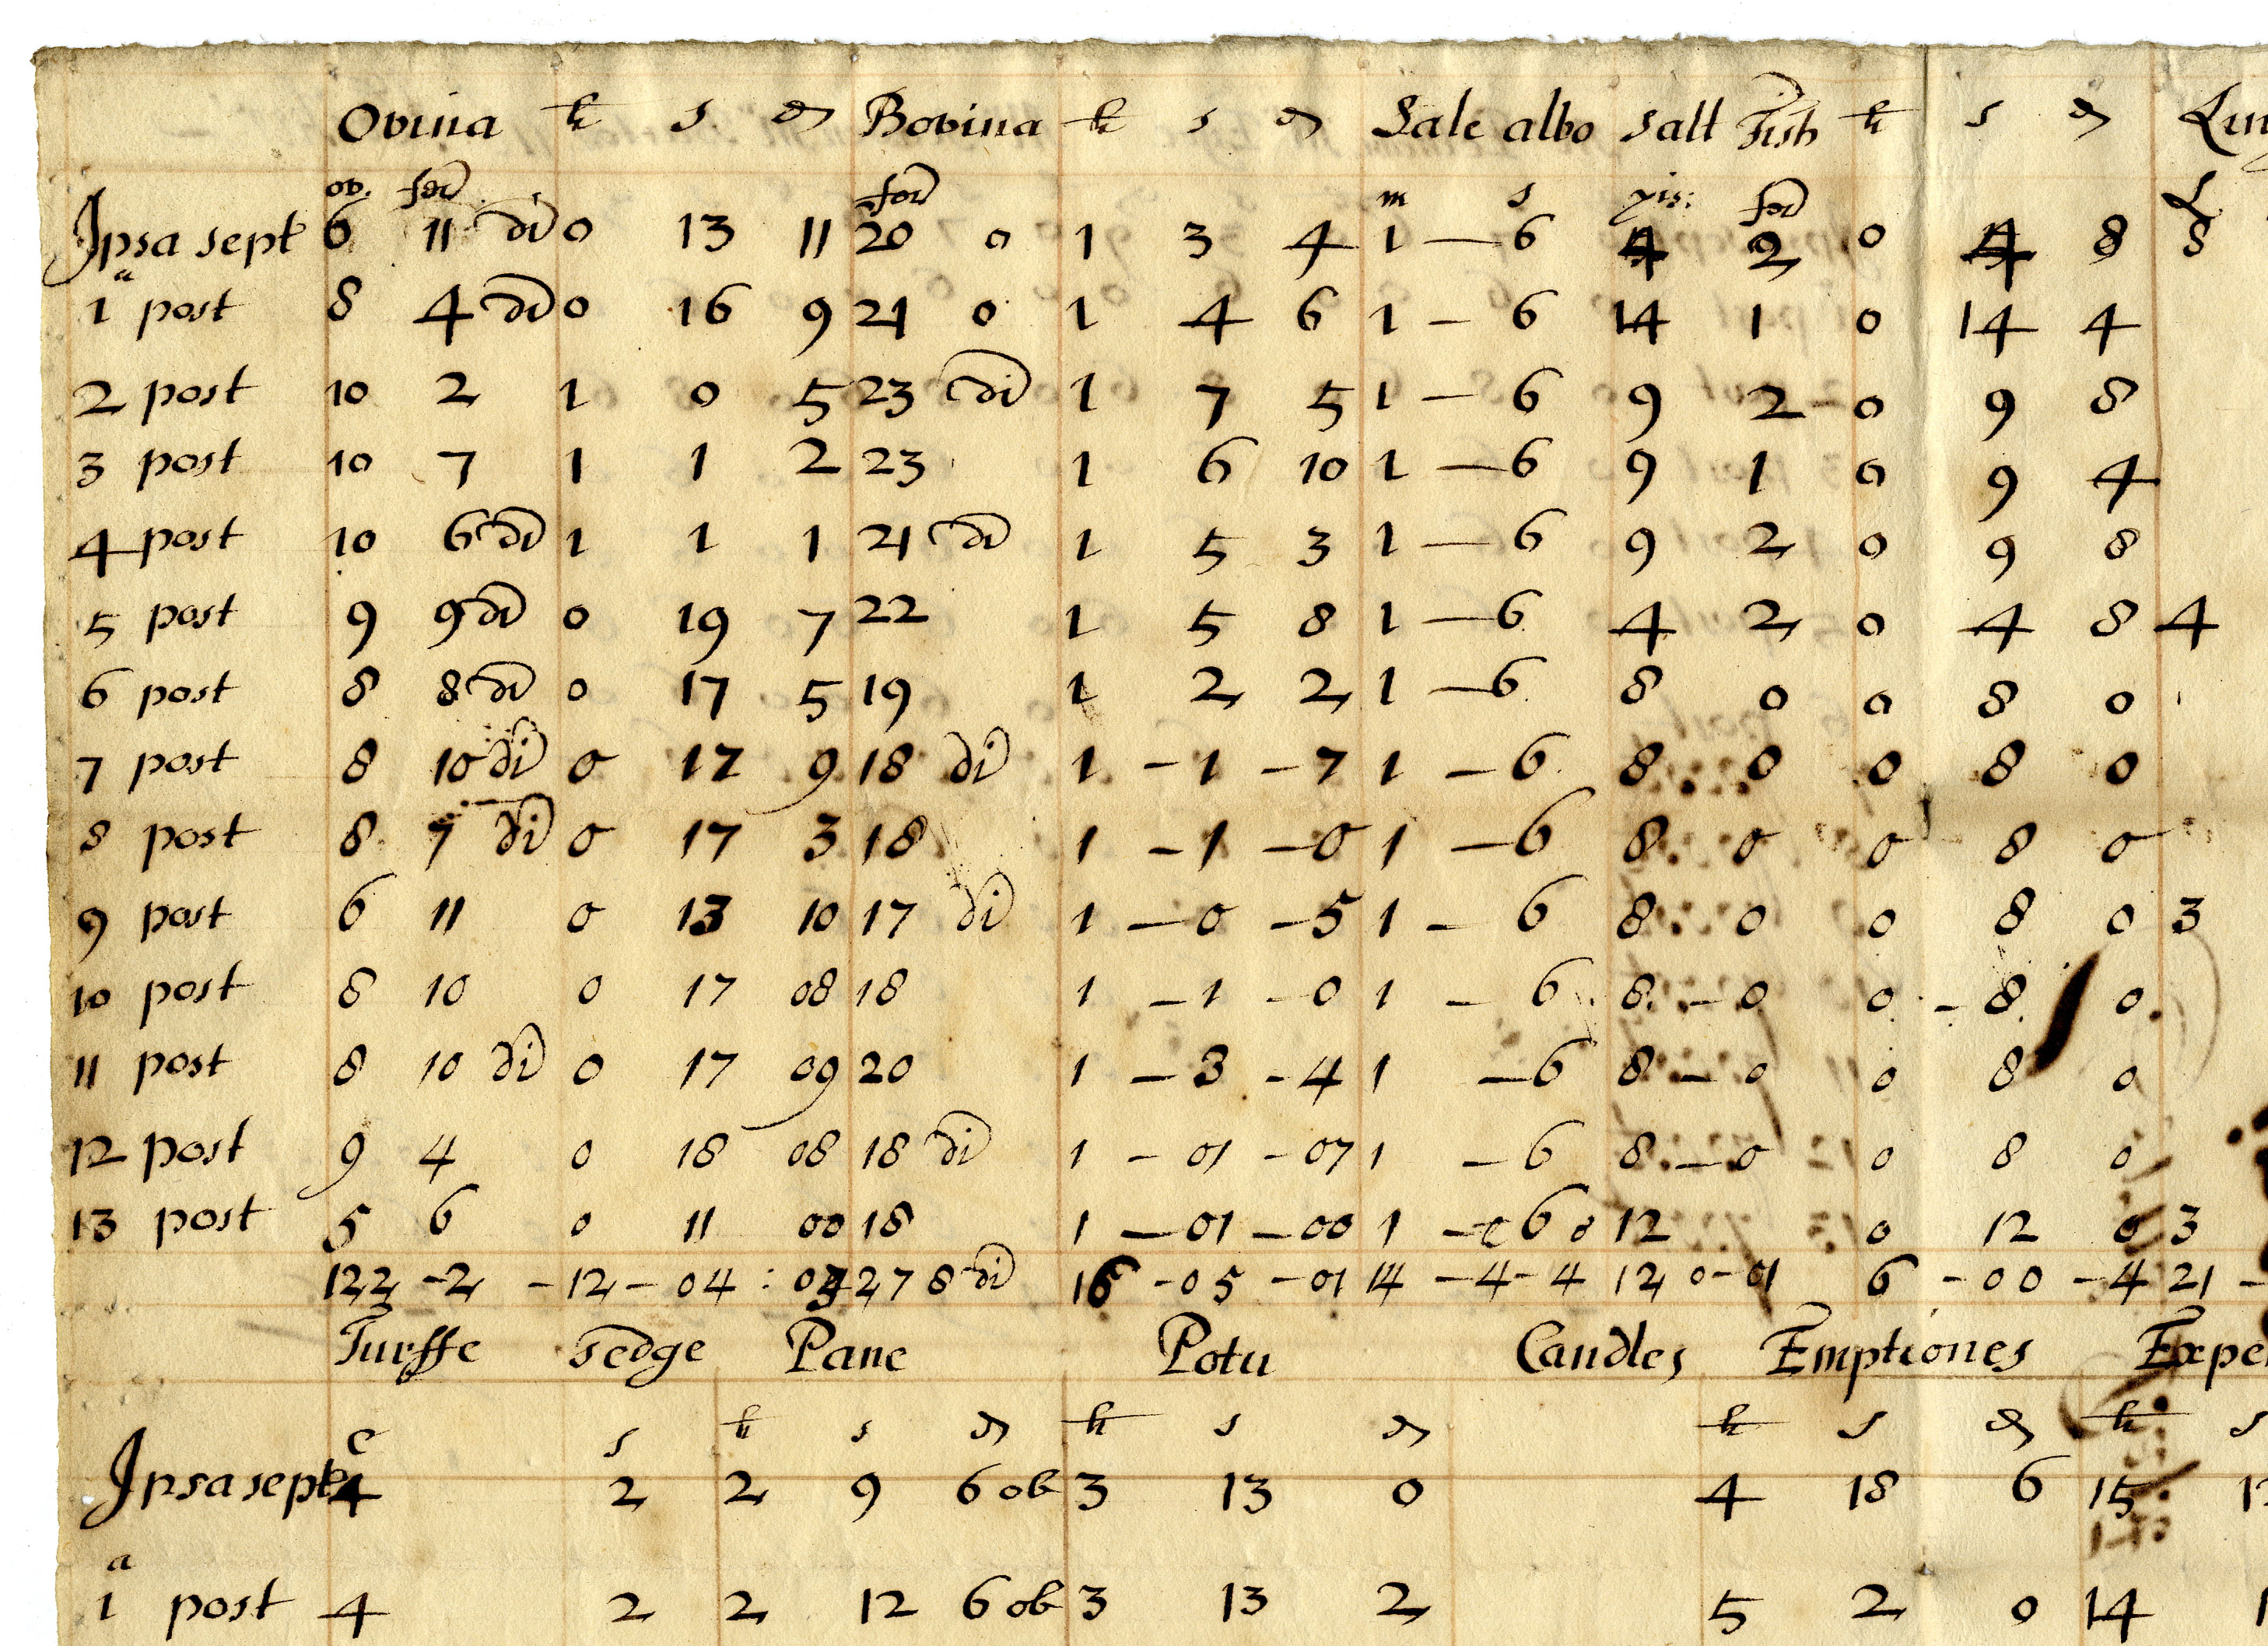 Ovina li s d Bovina li s d Sale albo salt Fish li s d
ob. for for m s pis: for
Ipsa sept 6 11 di 0 13 11 20 0 1 3 4 1 — 6 4 2 0 4 8 8
1a post 8 4 di 0 16 9 21 0 1 4 6 1 — 6 14 1 0 14 4
2 post 10 2 1 0 5 23 di 1 7 5 1 — 6 9 2 0 9 8
3 post 10 7 1 1 2 23 1 6 10 1 — 6 9 1 0 9 4
4 post 10 6 di 1 1 1 21 di 1 5 3 1 — 6 9 2 0 9 8
5 post 9 9 di 0 19 7 22 1 5 8 1 — 6 4 2 0 4 8 4
6 post 8 8 di 0 17 5 19 1 2 2 1 — 6 8 0 0 8 0
7 post 8 10 di 0 17 9 18 di 1 - 1 - 7 1 — 6 8 0 0 8 0
8 post 8 7 di 0 17 3 18 1 - 1 - 0 1 — 6 8 0 0 8 0
9 post 6 11 0 13 10 17 di 1 — 0 - 5 1 — 6 8 0 0 8 0 3
10 post 8 10 0 17 08 18 1 - 1 - 0 1 — 6 8 - 0 0 - 8 0
11 post 8 10 di 0 17 09 20 1 — 3 - 4 1 — 6 8 - 0 0 8 0
12 post 9 4 0 18 08 18 di 1 - 01 - 07 1 — 6 8 - 0 0 8 0
13 post 5 6 0 11 00 18 1 — 01 — 00 1 — 6 0 12 0 12 0 3
122 - 2 - 12 - 04 : 278 di 16 - 05 - 01 14 - 4 - 4 12 0 - 01 6 - 00 - 4 21 -
Turffe Sedge Pane Potu Candles Emptiones
C s li s d li s d li s d li s
Ipsa sept 4 2 2 9 6 ob 3 13 0 4 18 6 15
1a post 4 2 2 12 6 ob 3 13 2 5 2 0 14